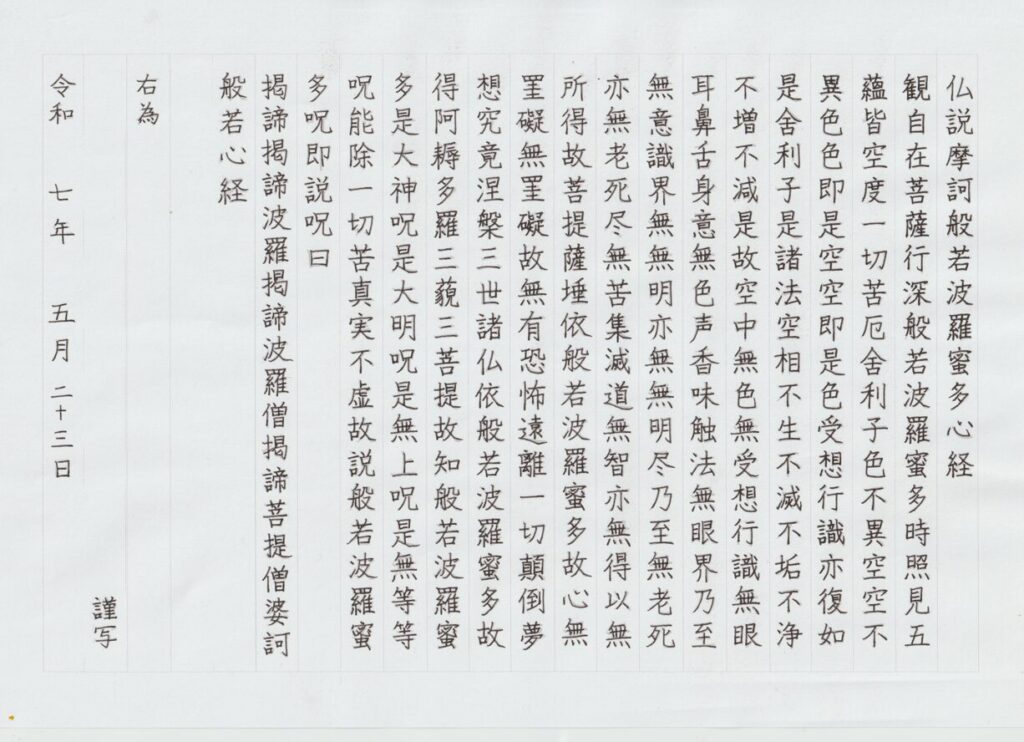 仏説摩訶般若波羅蜜多心経
観自在菩薩行深般若波羅蜜多時照見五
蘊皆空度一切苦厄舎利子色不異空空不
異色色即是空空即是色受想行識亦復如
是舎利子是諸法空相不生不滅不垢不浄
不増不減是故空中無色無受想行識無眼
耳鼻舌身意無色声香味触法無眼界乃至
無意識界無無明亦無無明尽乃至無老死
亦無老死尽無苦集滅道無智亦無得以無
所得故菩提薩埵依般若波羅蜜多故心無
罣礙無罣礙故無有恐怖遠離一切顛倒夢
想究竟涅槃三世諸仏依般若波羅蜜多故
得阿耨多羅三藐三菩提故知般若波羅蜜
多是大神呪是大明呪是無上呪是無等等
呪能除一切苦真実不虚故説般若波羅蜜
多呪即説呪曰
揭諦揭諦波羅揭諦波羅僧揭諦菩提僧婆訶
般若心経
右為
謹写
令和 七年 五月 二十三日